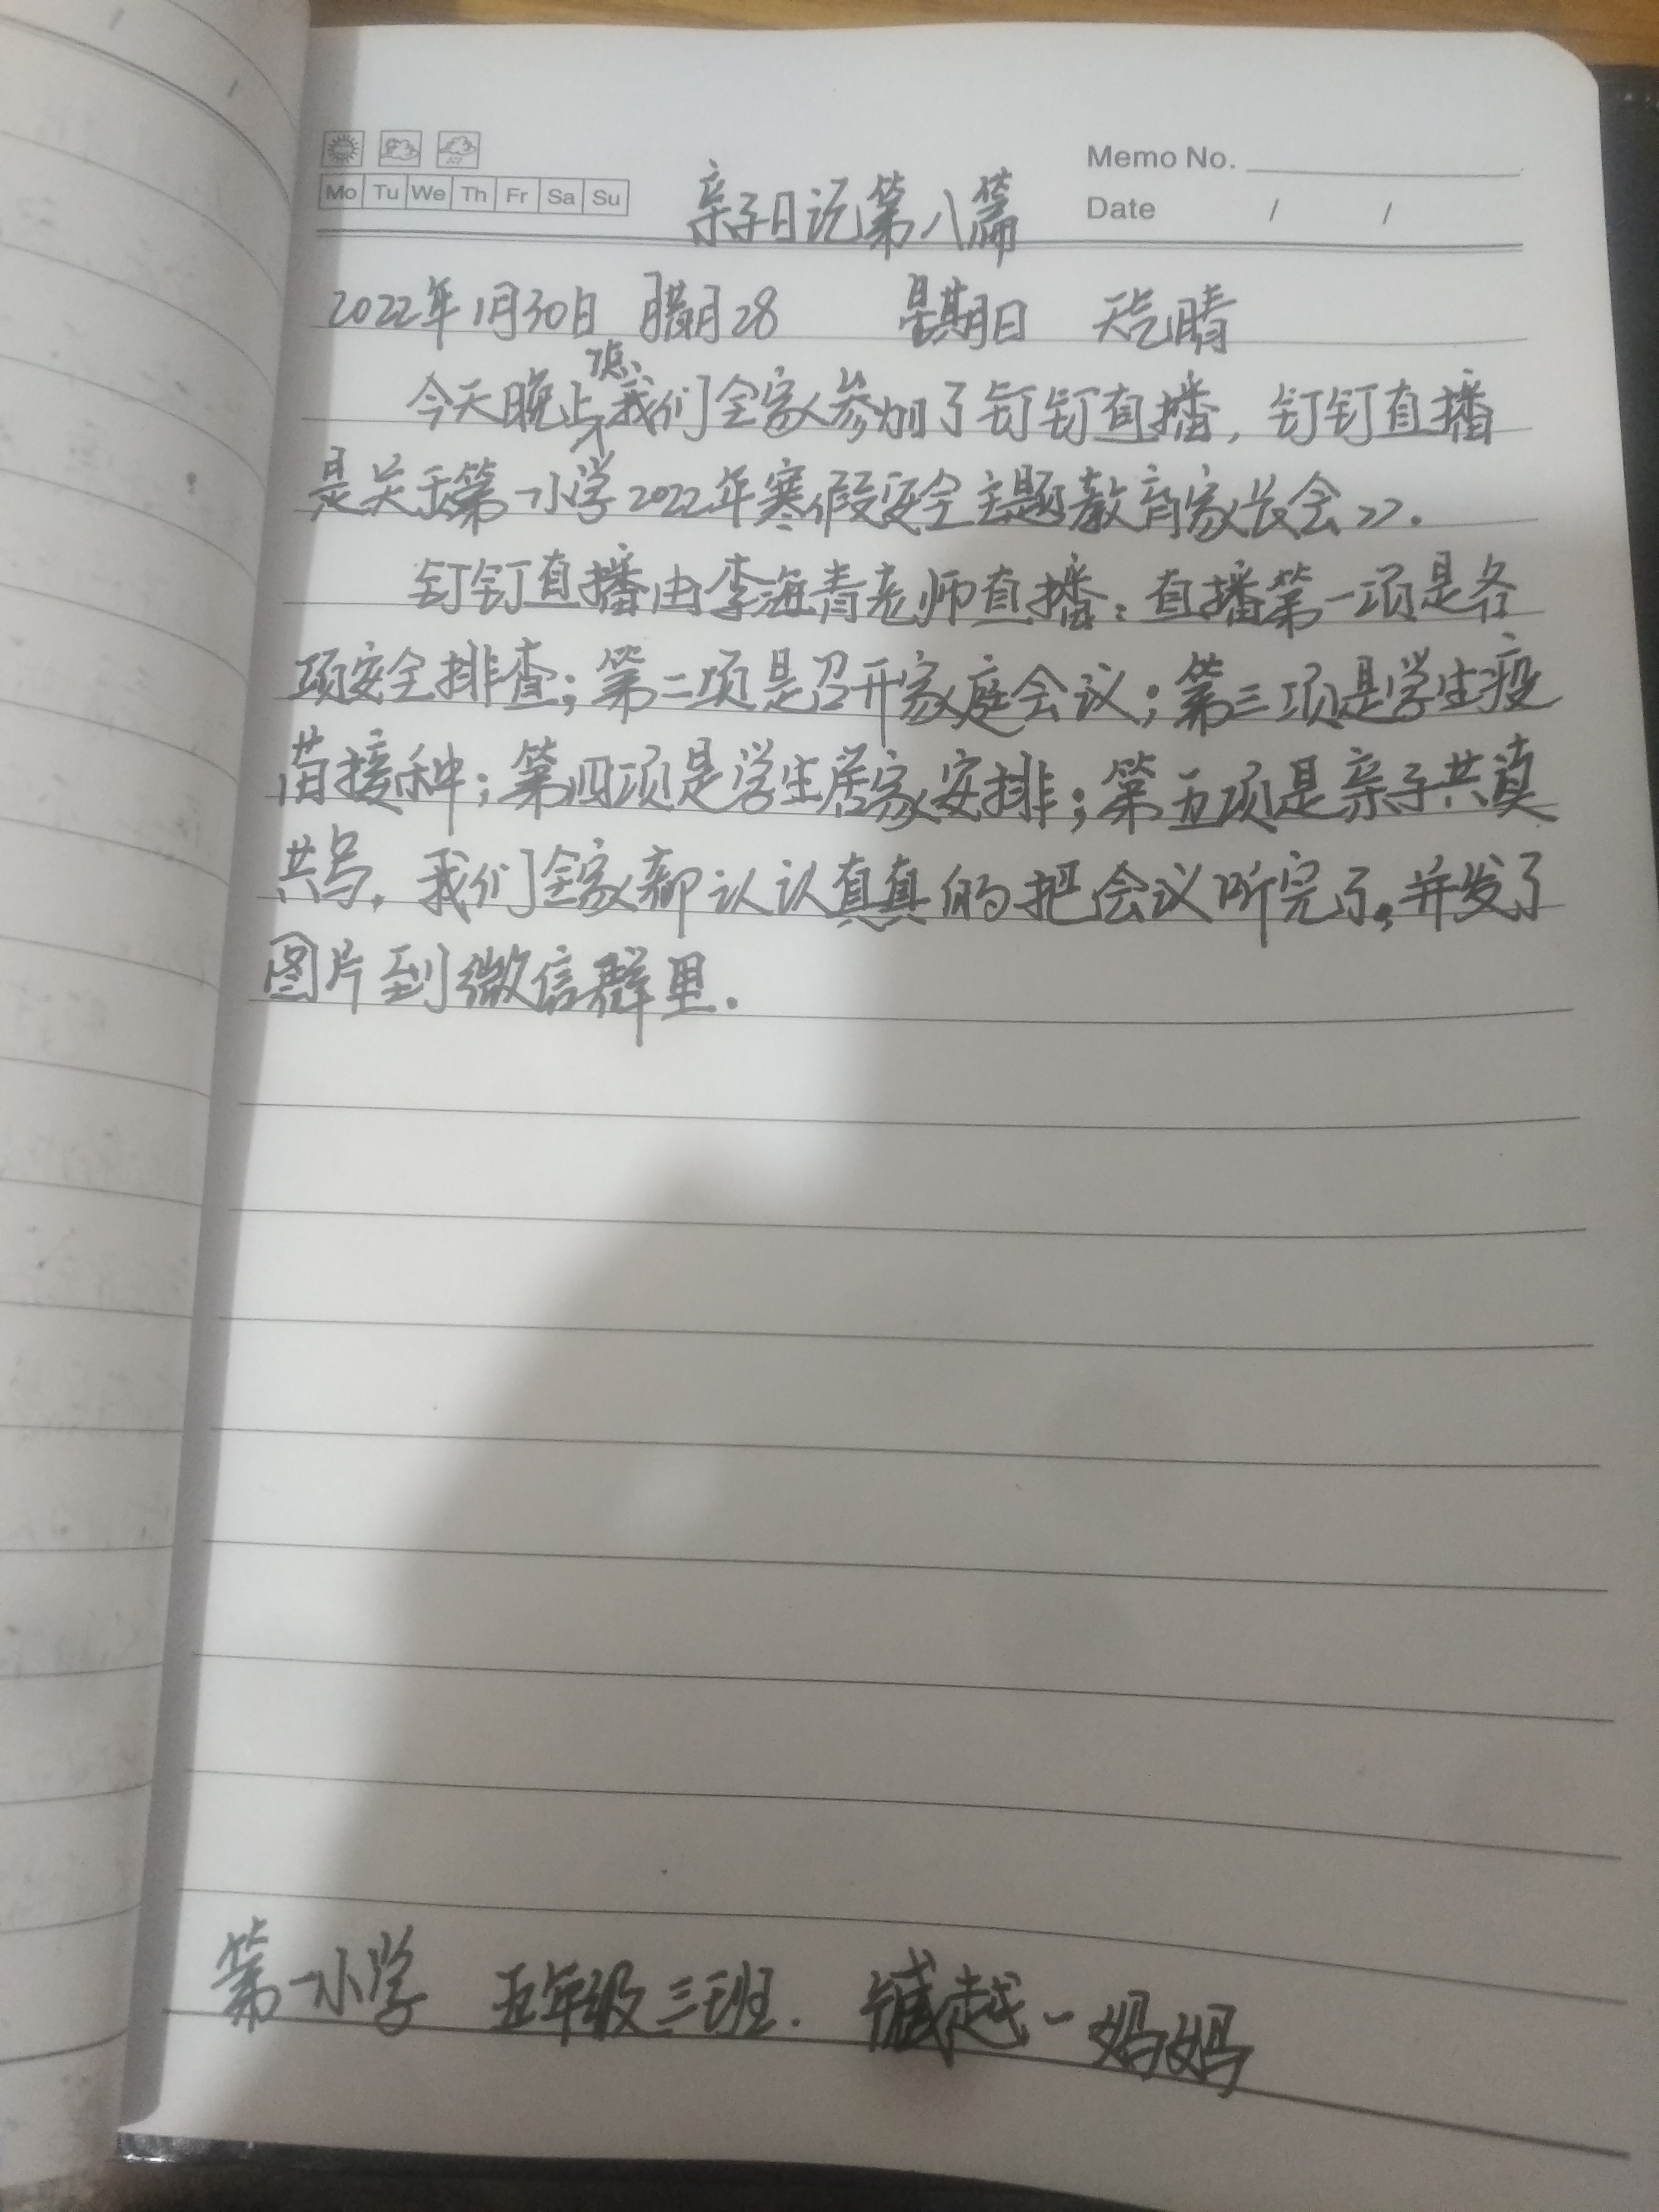 Memo No.
Mo Tu We Th Fr Sa Su
Date / /
亲子日记第八篇
2022年1月30日 腊月28 星期日 天气晴
7点
今天晚上我们全家人参加了钉钉直播,钉钉直播
是关于第一小学2022年寒假安全主题教育家长会>>.
钉钉直播由李海青老师直播:直播第一项是各
项安全排查;第二项是召开家庭会议;第三项是学生疫
苗接种;第四项是学生居家安排;第五项是亲子共读
共写,我们全家都认认真真的把会议听完了。并发了
图片到微信群里.
第一小学 五年级三班. 越一妈妈